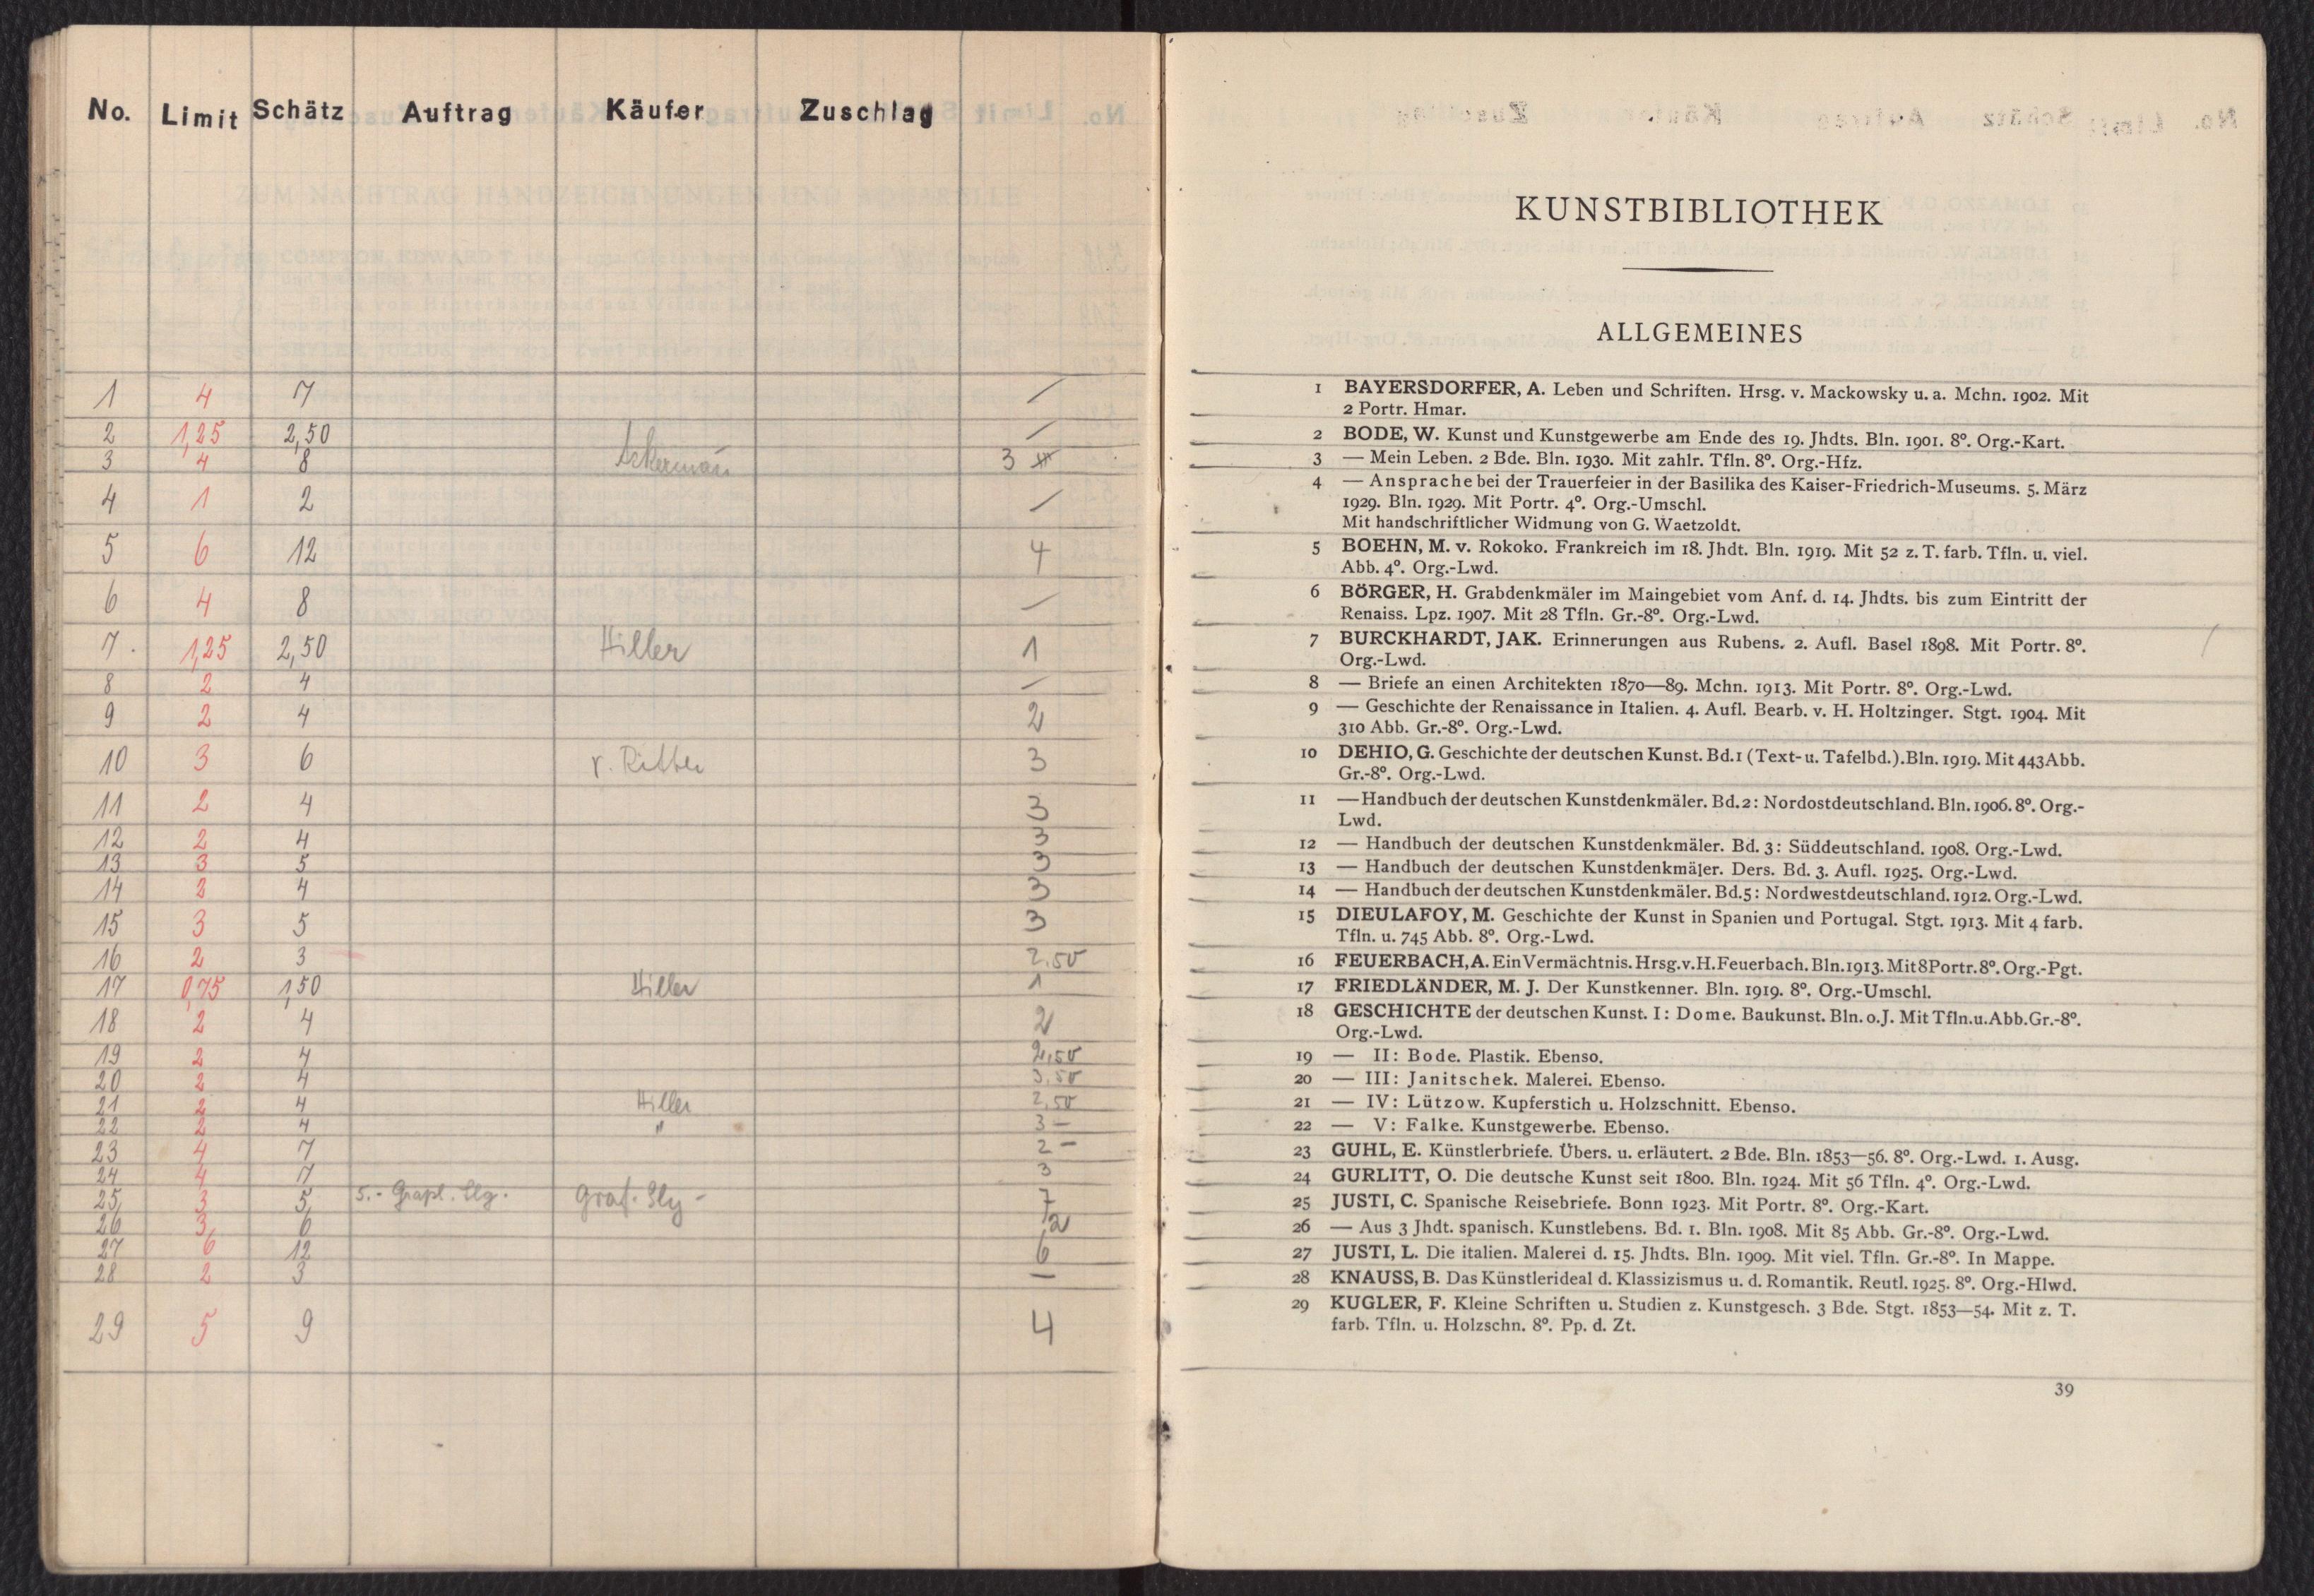 No. Limit Schätz Auftrag Käufer Zuschlag
1 4 7 —
2 1,25 2,50 —
3 4 8 Ackermann 3
4 1 2 —
5 6 12 4
6 4 8 —
7. 1,25 2,50 Hiller 1
8 2 4 —
9 2 4 2
10 3 6 v. Ritter 3
11 2 4 3
12 2 4 3
13 3 5 3
14 2 4 3
15 3 5 3
16 2 3 2.50
17 0,75 1,50 Hiller 1
18 2 4 2
19 2 4 2,50
20 2 4 3.50
21 2 4 Hiller 2,50
22 2 4 " 3 —
23 4 7 2 —
24 4 7 3
25 3 5 5.- Graph. Slg. Graf. Slg - 7
26 3 6 2
27 6 12 6
28 2 3 —
29 5 9 4
KUNSTBIBLIOTHEK
ALLGEMEINES
1 BAYERSDORFER, A. Leben und Schriften. Hrsg. v. Mackowsky u. a. Mchn. 1902. Mit
2 Portr. Hmar.
2 BODE, W. Kunst und Kunstgewerbe am Ende des 19. Jhdts. Bln. 1901. 8°. Org.-Kart.
3 — Mein Leben. 2 Bde. Bln. 1930. Mit zahlr. Tfln. 8°. Org.-Hfz.
4 — Ansprache bei der Trauerfeier in der Basilika des Kaiser-Friedrich-Museums. 5. März
1929. Bln. 1929. Mit Portr. 4°. Org.-Umschl.
Mit handschriftlicher Widmung von G. Waetzoldt.
5 BOEHN, M. v. Rokoko. Frankreich im 18. Jhdt. Bln. 1919. Mit 52 z. T. farb. Tfln. u. viel.
Abb. 4°. Org.-Lwd.
6 BÖRGER, H. Grabdenkmäler im Maingebiet vom Anf. d. 14. Jhdts. bis zum Eintritt der
Renaiss. Lpz. 1907. Mit 28 Tfln. Gr.-8°. Org.-Lwd.
7 BURCKHARDT, JAK. Erinnerungen aus Rubens. 2. Aufl. Basel 1898. Mit Portr. 8°.
Org.-Lwd.
8 — Briefe an einen Architekten 1870—89. Mchn. 1913. Mit Portr. 8°. Org.-Lwd.
9 — Geschichte der Renaissance in Italien. 4. Aufl. Bearb. v. H. Holtzinger. Stgt. 1904. Mit
310 Abb. Gr.-8°. Org.-Lwd.
10 DEHIO, G. Geschichte der deutschen Kunst. Bd. 1 (Text- u. Tafelbd.). Bln. 1919. Mit 443 Abb.
Gr.-8°. Org.-Lwd.
11 — Handbuch der deutschen Kunstdenkmäler. Bd. 2: Nordostdeutschland. Bln. 1906. 8°. Org.-
Lwd.
12 — Handbuch der deutschen Kunstdenkmäler. Bd. 3: Süddeutschland. 1908. Org.-Lwd.
13 — Handbuch der deutschen Kunstdenkmäler. Ders. Bd. 3. Aufl. 1925. Org.-Lwd.
14 — Handbuch der deutschen Kunstdenkmäler. Bd. 5: Nordwestdeutschland. 1912. Org.-Lwd.
15 DIEULAFOY, M. Geschichte der Kunst in Spanien und Portugal. Stgt. 1913. Mit 4 farb.
Tfln. u. 745 Abb. 8°. Org.-Lwd.
16 FEUERBACH, A. Ein Vermächtnis. Hrsg. v. H. Feuerbach. Bln. 1913. Mit 8 Portr. 8°. Org.-Pgt.
17 FRIEDLÄNDER, M. J. Der Kunstkenner. Bln. 1919. 8°. Org.-Umschl.
18 GESCHICHTE der deutschen Kunst. I: Dome. Baukunst. Bln. o. J. Mit Tfln. u. Abb. Gr.-8°.
Org.-Lwd.
19 — II: Bode. Plastik. Ebenso.
20 — III: Janitschek. Malerei. Ebenso.
21 — IV: Lützow. Kupferstich u. Holzschnitt. Ebenso.
22 — V: Falke. Kunstgewerbe. Ebenso.
23 GUHL, E. Künstlerbriefe. Übers. u. erläutert. 2 Bde. Bln. 1853—56. 8°. Org.-Lwd. 1. Ausg.
24 GURLITT, O. Die deutsche Kunst seit 1800. Bln. 1924. Mit 56 Tfln. 4°. Org.-Lwd.
25 JUSTI, C. Spanische Reisebriefe. Bonn 1923. Mit Portr. 8°. Org.-Kart.
26 — Aus 3 Jhdt. spanisch. Kunstlebens. Bd. 1. Bln. 1908. Mit 85 Abb. Gr.-8°. Org.-Lwd.
27 JUSTI, L. Die italien. Malerei d. 15. Jhdts. Bln. 1909. Mit viel. Tfln. Gr.-8°. In Mappe.
28 KNAUSS, B. Das Künstlerideal d. Klassizismus u. d. Romantik. Reutl. 1925. 8°. Org.-Hlwd.
29 KUGLER, F. Kleine Schriften u. Studien z. Kunstgesch. 3 Bde. Stgt. 1853—54. Mit z. T.
farb. Tfln. u. Holzschn. 8°. Pp. d. Zt.
39